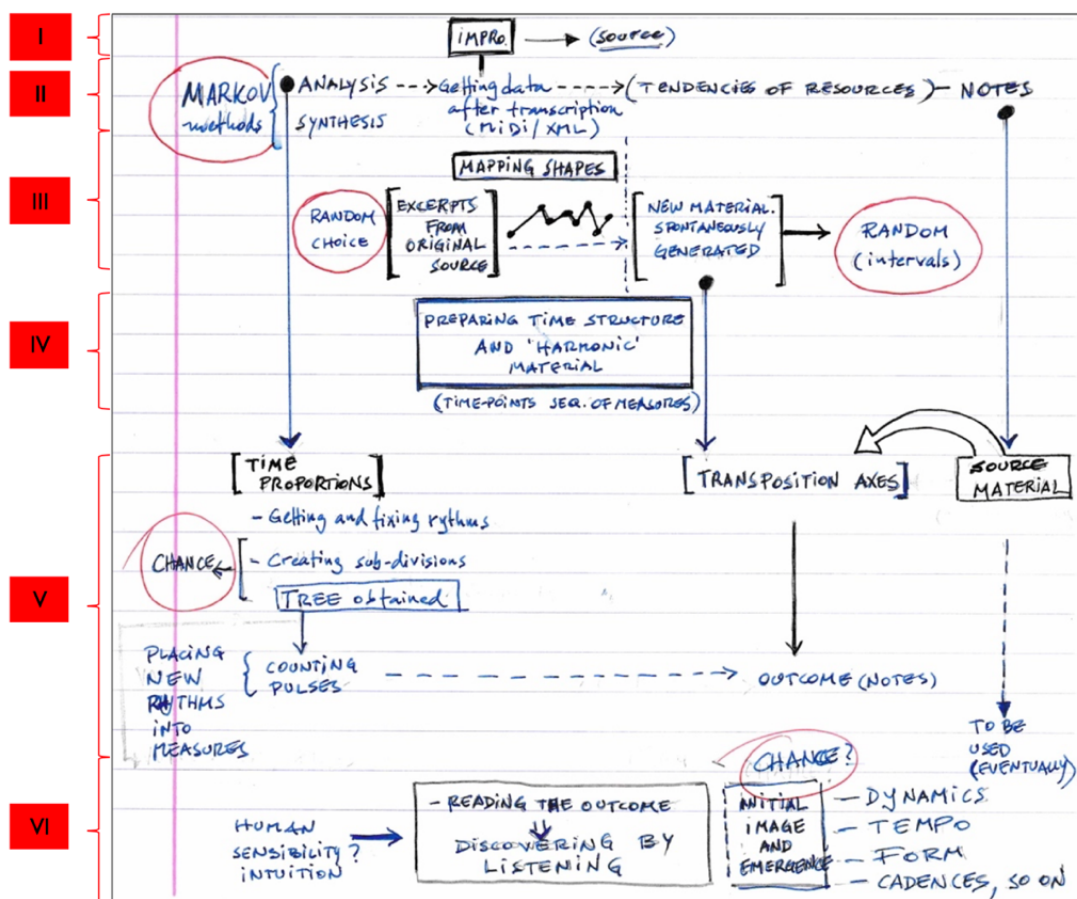 I
IMPRO. (SOURCE)
II
MARKOV methods
ANALYSIS
SYNTHESIS
Getting data
after transcription
(MiDi/XML)
(TENDENCIES OF RESOURCES) - NOTES
III
MAPPING SHAPES
RANDOM
CHOICE
EXCERPTS
FROM
ORIGINAL
SOURCE
NEW MATERIAL.
SPONTANEOUSLY
GENERATED
RANDOM
(intervals)
IV
PREPARING TIME STRUCTURE
AND 'HARMONIC'
MATERIAL
(TIME-POINTS SEQ. OF MEASURES)
V
[TIME
PROPORTIONS]
- Getting and fixing rythms
- Creating sub-divisions
TREE obtained
CHANCE
[TRANSPOSITION AXES]
SOURCE
MATERIAL
PLACING
NEW
RHYTHMS
INTO
MEASURES
COUNTING
PULSES
OUTCOME (NOTES)
TO BE
USED
(EVENTUALLY)
VI
HUMAN
SENSIBILITY?
INTUITION
- READING THE OUTCOME
DISCOVERING BY
LISTENING
CHANCE?
INITIAL
IMAGE
AND
EMERGENCE
- DYNAMICS
- TEMPO
- FORM
- CADENCES, SO ON